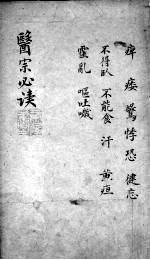 痺 痿 驚 悸 恐 健忘
不得臥 不能食 汗 黄疸
霍亂 嘔吐噦
醫宗必讀